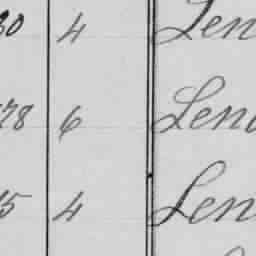 30 4 Len
78 6 Len
15 4 Len